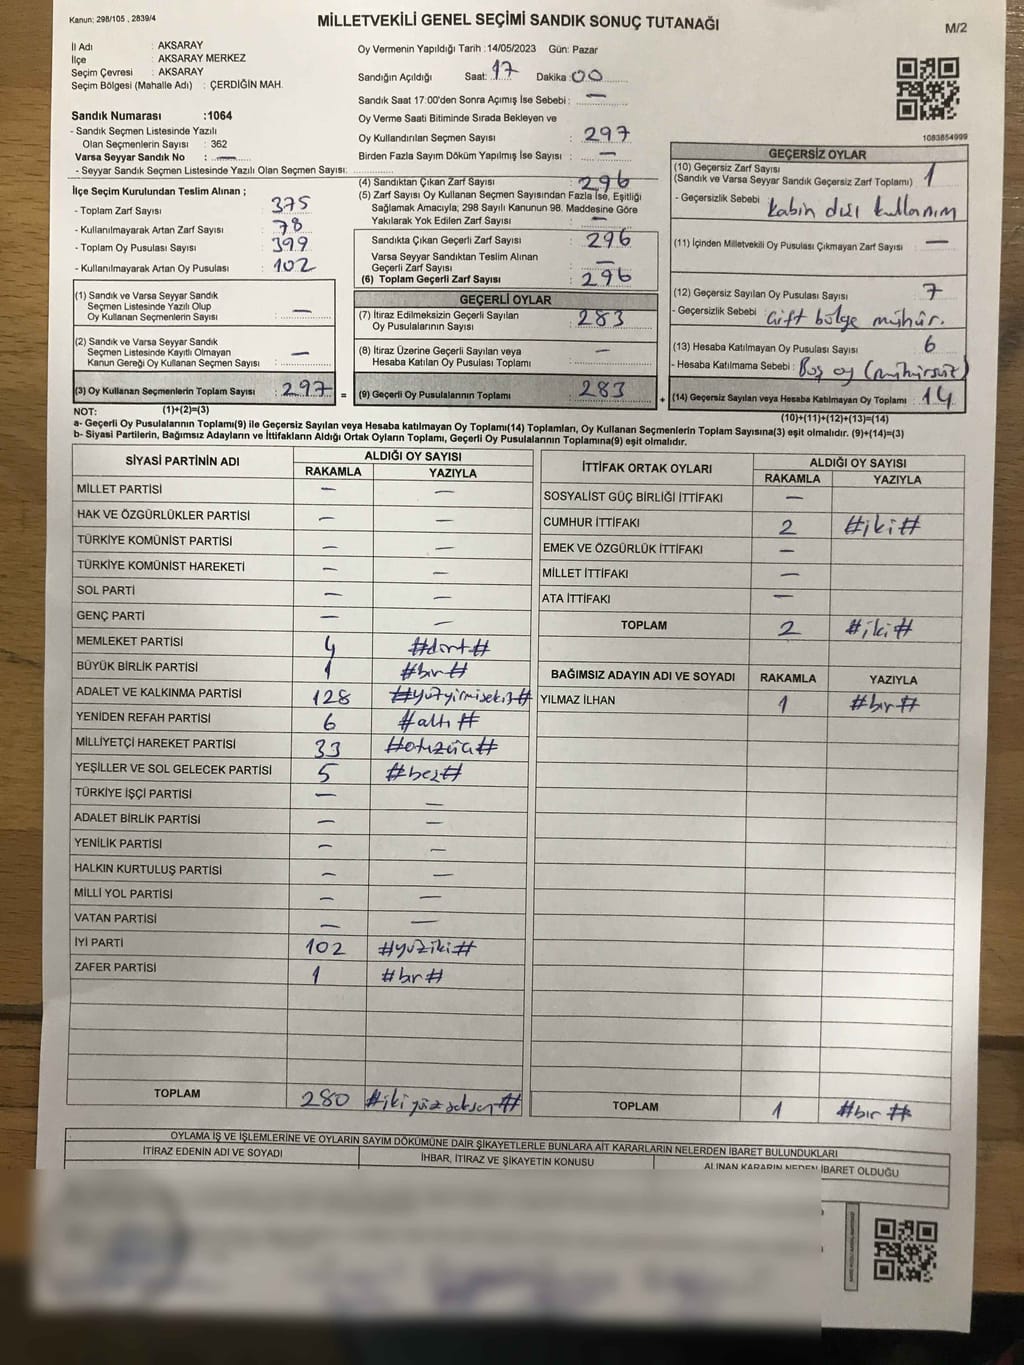 Kanun: 298/105 , 2839/4
MİLLETVEKİLİ GENEL SEÇİMİ SANDIK SONUÇ TUTANAĞI
M/2
İl Adı : AKSARAY
İlçe : AKSARAY MERKEZ
Seçim Çevresi : AKSARAY
Seçim Bölgesi (Mahalle Adı) : ÇERDİĞİN MAH.
Sandık Numarası :1064
- Sandık Seçmen Listesinde Yazılı
Olan Seçmenlerin Sayısı : 362
Varsa Seyyar Sandık No : —
- Seyyar Sandık Seçmen Listesinde Yazılı Olan Seçmen Sayısı:
Oy Vermenin Yapıldığı Tarih :14/05/2023 Gün: Pazar
Sandığın Açıldığı Saat: 17 Dakika: 00
Sandık Saat 17:00'den Sonra Açımış İse Sebebi : —
Oy Verme Saati Bitiminde Sırada Bekleyen ve
Oy Kullandırılan Seçmen Sayısı : 297
Birden Fazla Sayım Döküm Yapılmış İse Sayısı : —
1083854999
İlçe Seçim Kurulundan Teslim Alınan ;
- Toplam Zarf Sayısı : 375
- Kullanılmayarak Artan Zarf Sayısı : 78
- Toplam Oy Pusulası Sayısı : 399
- Kullanılmayarak Artan Oy Pusulası : 102
(1) Sandık ve Varsa Seyyar Sandık
Seçmen Listesinde Yazılı Olup
Oy Kullanan Seçmenlerin Sayısı : —
(2) Sandık ve Varsa Seyyar Sandık
Seçmen Listesinde Kayıtlı Olmayan
Kanun Gereği Oy Kullanan Seçmen Sayısı : —
(3) Oy Kullanan Seçmenlerin Toplam Sayısı : 297 =
(1)+(2)=(3)
(4) Sandıktan Çıkan Zarf Sayısı : 296
(5) Zarf Sayısı Oy Kullanan Seçmen Sayısından Fazla İse, Eşitliği
Sağlamak Amacıyla; 298 Sayılı Kanunun 98. Maddesine Göre
Yakılarak Yok Edilen Zarf Sayısı : —
Sandıkta Çıkan Geçerli Zarf Sayısı : 296
Varsa Seyyar Sandıktan Teslim Alınan
Geçerli Zarf Sayısı : —
(6) Toplam Geçerli Zarf Sayısı : 296
GEÇERLİ OYLAR
(7) İtiraz Edilmeksizin Geçerli Sayılan
Oy Pusulalarının Sayısı : 283
(8) İtiraz Üzerine Geçerli Sayılan veya
Hesaba Katılan Oy Pusulası Toplamı : —
(9) Geçerli Oy Pusulalarının Toplamı : 283 +
GEÇERSİZ OYLAR
(10) Geçersiz Zarf Sayısı
(Sandık ve Varsa Seyyar Sandık Geçersiz Zarf Toplamı) : 1
- Geçersizlik Sebebi : kabin dışı kullanım
(11) İçinden Milletvekili Oy Pusulası Çıkmayan Zarf Sayısı : —
(12) Geçersiz Sayılan Oy Pusulası Sayısı : 7
- Geçersizlik Sebebi : Çift bölge mühür.
(13) Hesaba Katılmayan Oy Pusulası Sayısı : 6
- Hesaba Katılmama Sebebi : Boş oy (mühürsüz)
(14) Geçersiz Sayılan veya Hesaba Katılmayan Oy Toplamı : 14
(10)+(11)+(12)+(13)=(14)
NOT:
a- Geçerli Oy Pusulalarının Toplamı(9) ile Geçersiz Sayılan veya Hesaba katılmayan Oy Toplamı(14) Toplamları, Oy Kullanan Seçmenlerin Toplam Sayısına(3) eşit olmalıdır. (9)+(14)=(3)
b- Siyasi Partilerin, Bağımsız Adayların ve İttifakların Aldığı Ortak Oyların Toplamı, Geçerli Oy Pusulalarının Toplamına(9) eşit olmalıdır.
SİYASİ PARTİNİN ADI ALDIĞI OY SAYISI
RAKAMLA YAZIYLA
MİLLET PARTİSİ — —
HAK VE ÖZGÜRLÜKLER PARTİSİ — —
TÜRKİYE KOMÜNİST PARTİSİ — —
TÜRKİYE KOMÜNİST HAREKETİ — —
SOL PARTİ — —
GENÇ PARTİ — —
MEMLEKET PARTİSİ 4 #dört#
BÜYÜK BİRLİK PARTİSİ 1 #bir#
ADALET VE KALKINMA PARTİSİ 128 #yüzyirmisekiz#
YENİDEN REFAH PARTİSİ 6 #altı#
MİLLİYETÇİ HAREKET PARTİSİ 33 #otuzüç#
YEŞİLLER VE SOL GELECEK PARTİSİ 5 #beş#
TÜRKİYE İŞÇİ PARTİSİ — —
ADALET BİRLİK PARTİSİ — —
YENİLİK PARTİSİ — —
HALKIN KURTULUŞ PARTİSİ — —
MİLLİ YOL PARTİSİ — —
VATAN PARTİSİ — —
İYİ PARTİ 102 #yüziki#
ZAFER PARTİSİ 1 #bir#
TOPLAM 280 #ikiyüzseksen#
İTTİFAK ORTAK OYLARI ALDIĞI OY SAYISI
RAKAMLA YAZIYLA
SOSYALİST GÜÇ BİRLİĞİ İTTİFAKI —
CUMHUR İTTİFAKI 2 #iki#
EMEK VE ÖZGÜRLÜK İTTİFAKI —
MİLLET İTTİFAKI —
ATA İTTİFAKI —
TOPLAM 2 #iki#
BAĞIMSIZ ADAYIN ADI VE SOYADI RAKAMLA YAZIYLA
YILMAZ İLHAN 1 #bir#
TOPLAM 1 #bir#
OYLAMA İŞ VE İŞLEMLERİNE VE OYLARIN SAYIM DÖKÜMÜNE DAİR ŞİKAYETLERLE BUNLARA AİT KARARLARIN NELERDEN İBARET BULUNDUKLARI
İTİRAZ EDENİN ADI VE SOYADI İHBAR, İTİRAZ VE ŞİKAYETİN KONUSU ALINAN KARARIN NEDEN İBARET OLDUĞU